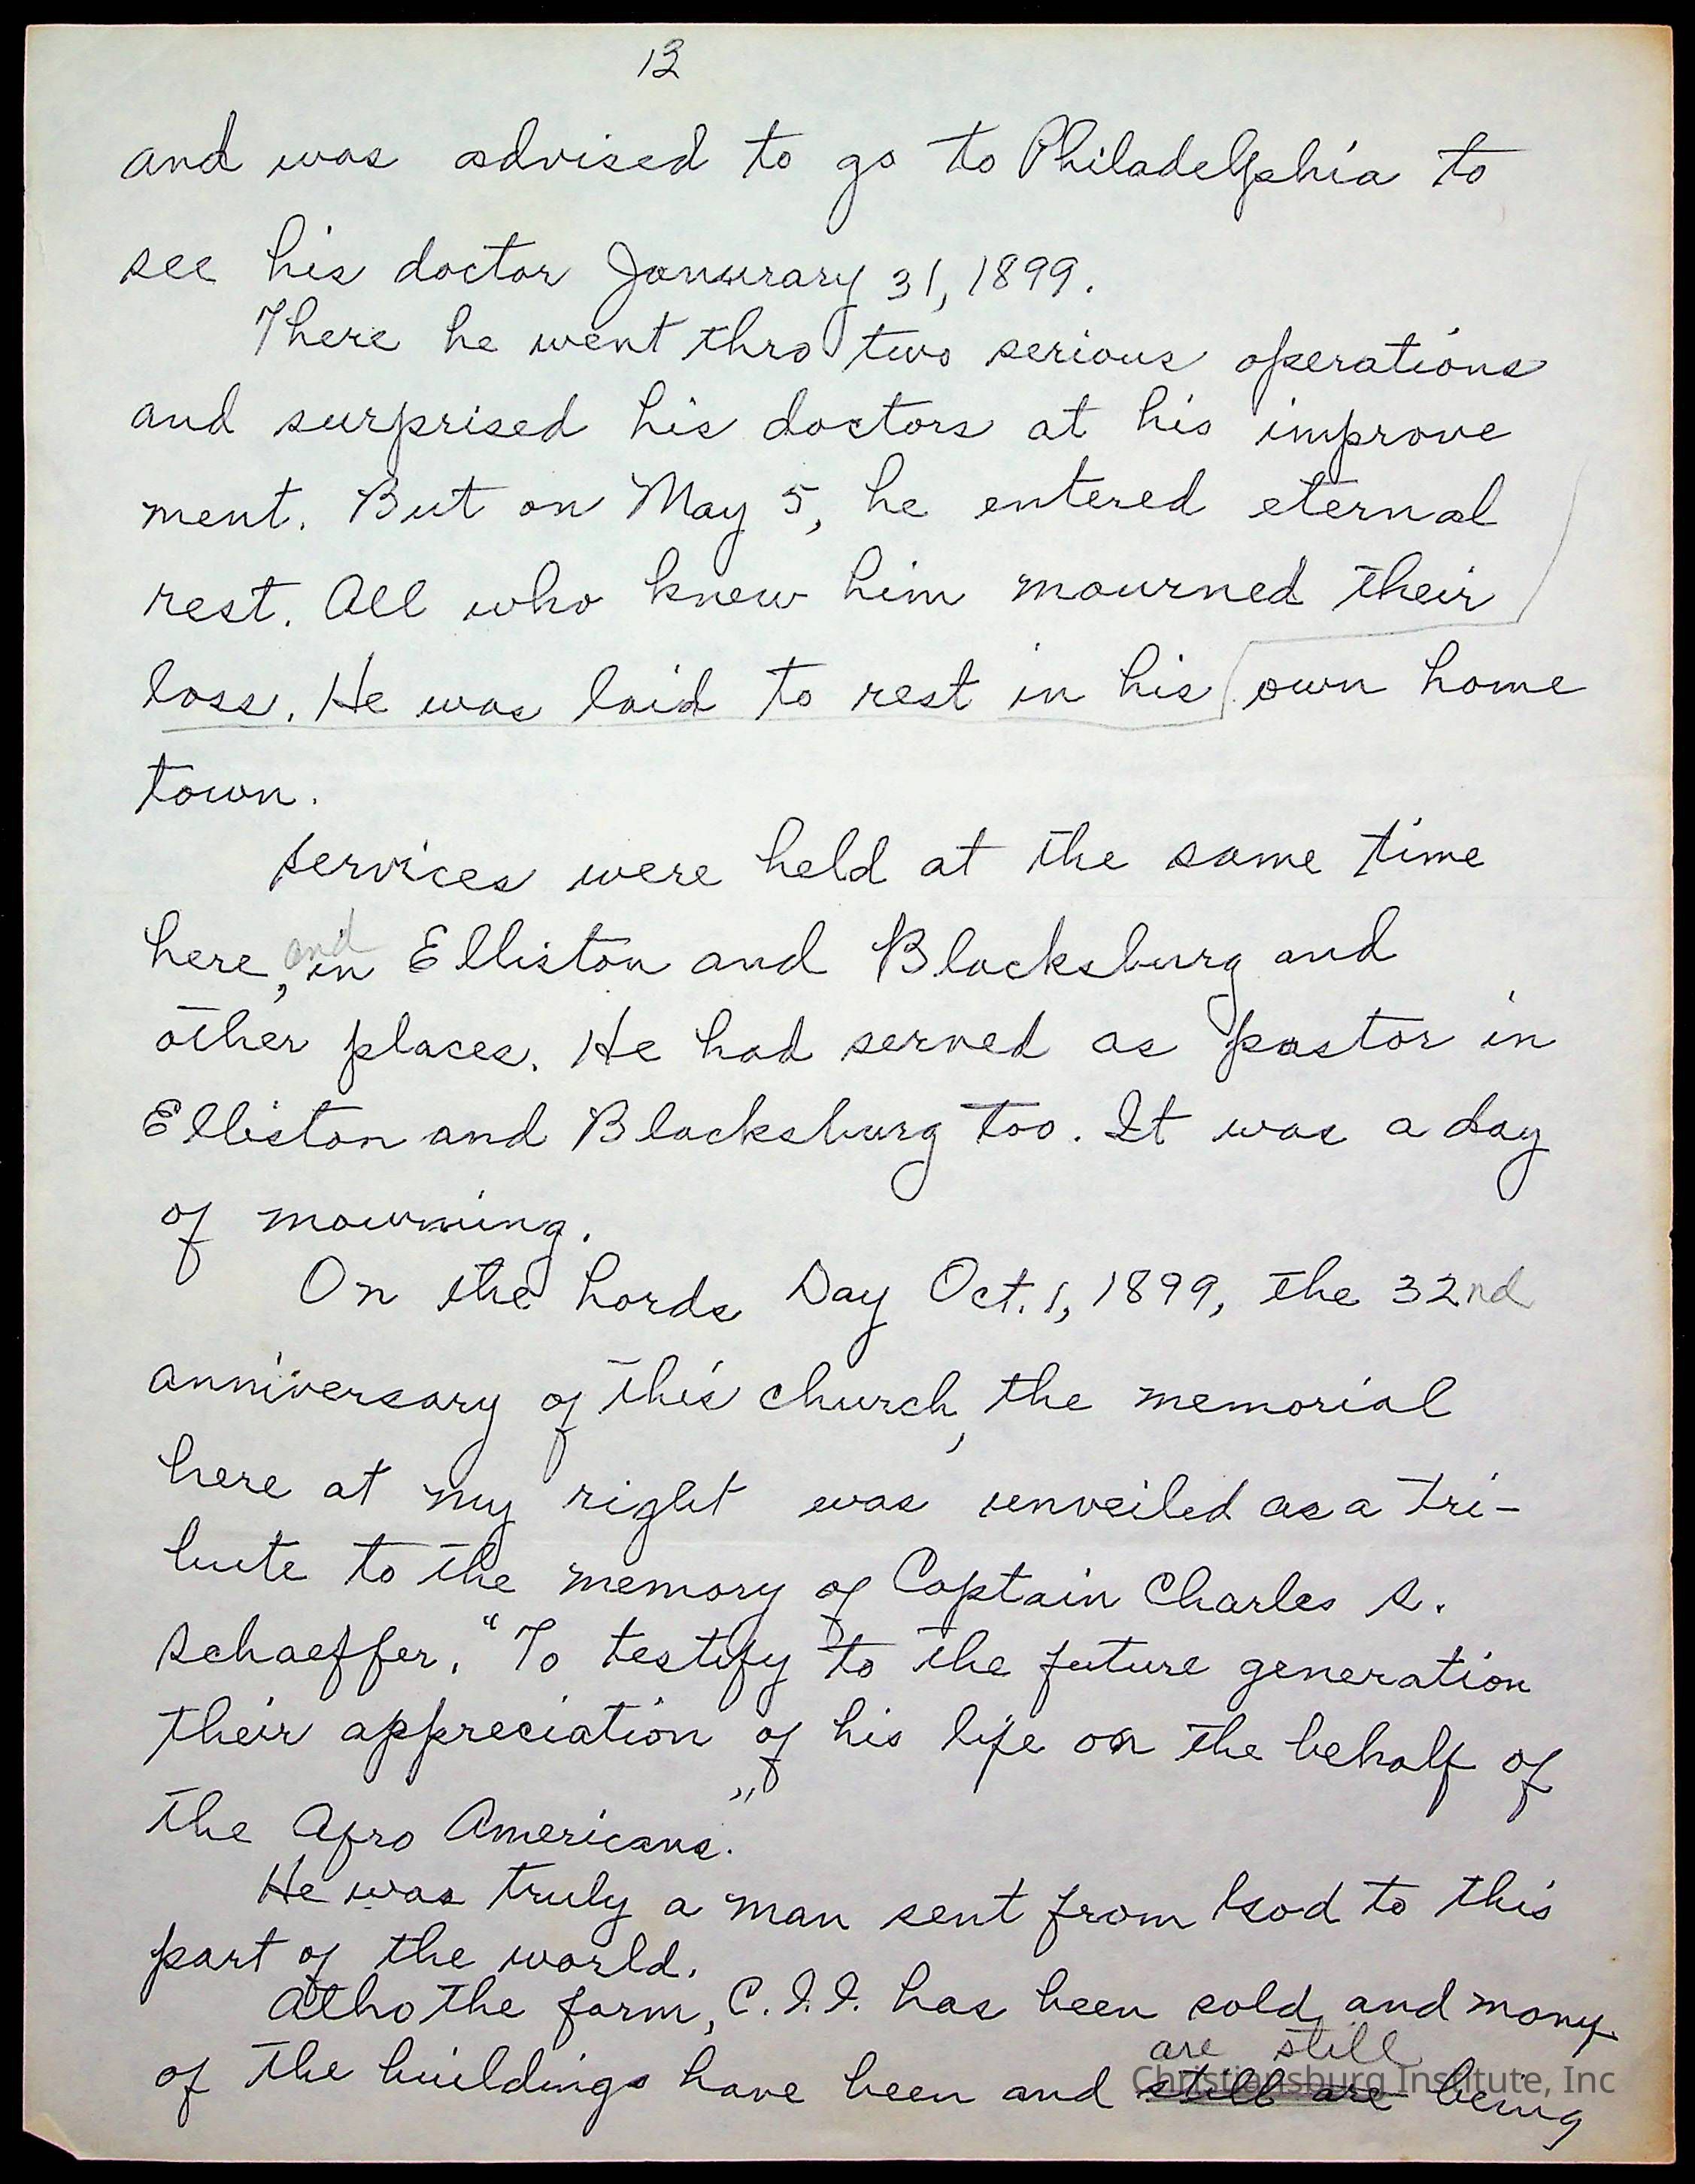 13
and was advised to go to Philadelphia to
see his doctor Janurary 31, 1899.
There he went thro two serious operations
and surprised his doctors at his improve
ment. But on May 5, he entered eternal
rest. All who knew him mourned their
loss. He was laid to rest in his own home
town.
services were held at the same time
here, and in Elliston and Blacksburg and
other places. He had served as pastor in
Elliston and Blacksburg too. It was a day
of mourning.
On the Lords Day Oct. 1, 1899, the 32nd
anniversary of this church, the memorial
here at my right was unveiled as a tri-
bute to the memory of Captain Charles S.
Schaeffer. "To testify to the future generation
their appreciation of his life on the behalf of
the Afro Americans."
He was truly a man sent from God to this
part of the world.
Atho the farm, C.I.I. has been sold, and many
are still
of the buildings have been and still are being
Christiansburg Institute, Inc